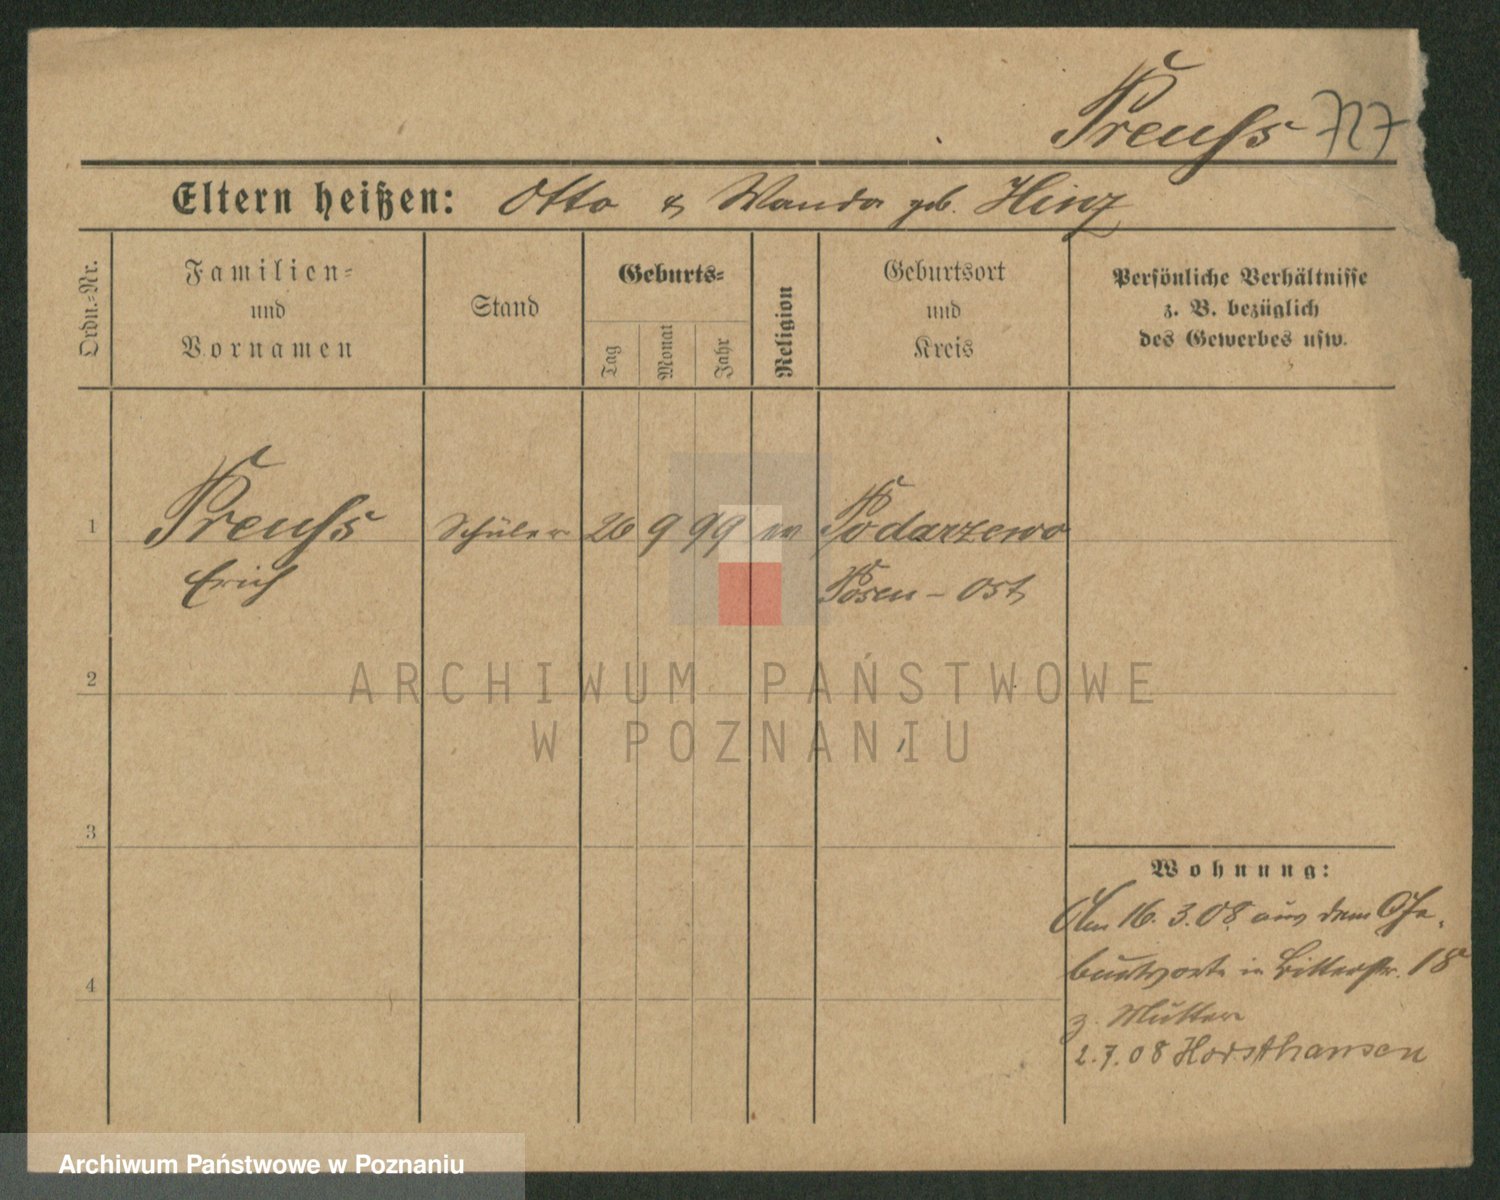 Preuss 727
Eltern heißen: Otto & Wanda geb. Hinz
Ordn.=Nr.
Familien=
und
Vornamen
Stand
Geburts=
Tag
Monat
Jahr
Religion
Geburtsort
und
Kreis
Persönliche Verhältnisse
z. B. bezüglich
des Gewerbes usw.
1 Preuss Schüler 26 9 99 Podarzewo
Erich Posen - Ost
2
ARCHIWUM PAŃSTWOWE
W POZNANIU
3
Wohnung:
Am 16. 3. 08 aus dem Ge-
burtsorte in Bitterstr. 18
4
z. Mutter
2. 7. 08 Horsthausen
Archiwum Państwowe w Poznaniu